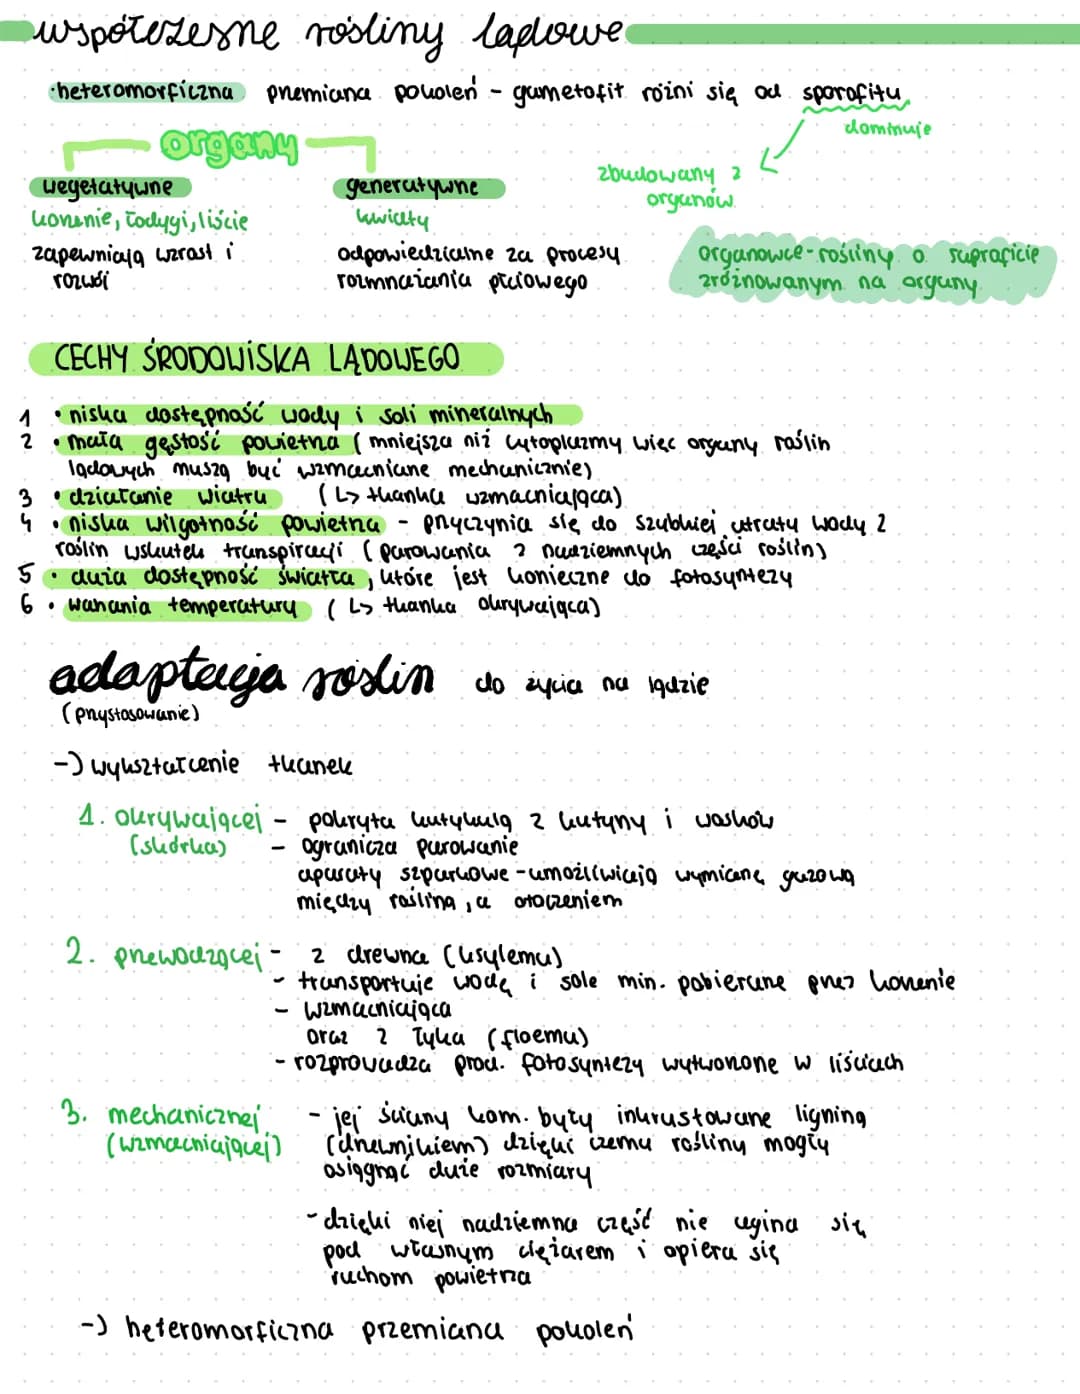 współczesne rośliny lądowe
•heteromorficzna przemiana pokoleń - gametofit różni się od sporofitu
dominuje
organy
zbudowany z
organów
wegetatywne generatywne
korzenie, łodygi, liście kwiaty
zapewniają wzrost i odpowiedzialne za procesy
rozwój rozmnażania płciowego
organowce - rośliny o soproficie
zróżnowanym na organy
CECHY ŚRODOWISKA LĄDOWEGO
1 • niska dostępność wody i soli mineralnych
2 • mała gęstość powietrza (mniejsza niż cytoplazmy więc organy roślin
lądowych muszą być wzmacniane mechanicznie)
3 • działanie wiatru (↳ tkanka wzmacniająca)
4 • niska wilgotność powietrza - przyczynia się do szybkiej utraty wody z
roślin wskutek transpiracji (parowania z nadziemnych części roślin)
5 • duża dostępność światła, które jest konieczne do fotosyntezy
6 • wahania temperatury (↳ tkanka okrywająca)
adaptacja roślin do życia na lądzie
(przystosowanie)
-) wykształcenie tkanek
1. okrywającej - pokryta kutykulą z kutyny i wosków
(skórka) - ogranicza parowanie
aparaty szparkowe - umożliwiają wymianę gazową
między rośliną, a otoczeniem
2. przewodzącej - z drewna (ksylemu)
- transportuje wodę i sole min. pobierane przez korzenie
- wzmacniająca
oraz z łyka (floemu)
- rozprowadza prod. fotosyntezy wytworzone w liściach
3. mechanicznej - jej ściany kom. były inkrustowane ligniną
(wzmacniającej) (drzewnikiem) dzięki czemu rośliny mogły
osiągnąć duże rozmiary
- dzięki niej nadziemna część nie ugina się
pod własnym ciężarem i opiera się
ruchom powietrza
-) heteromorficzna przemiana pokoleń